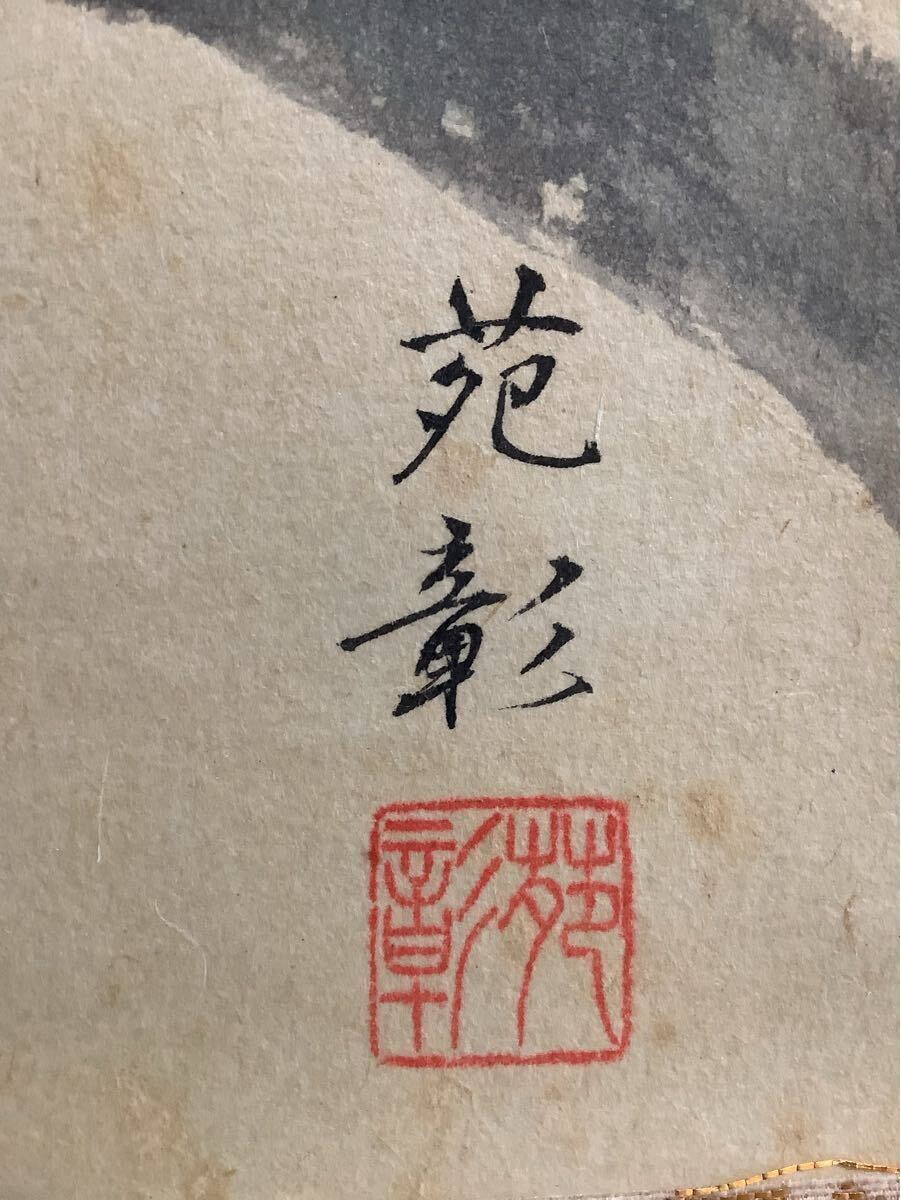 苑彰
苑彰